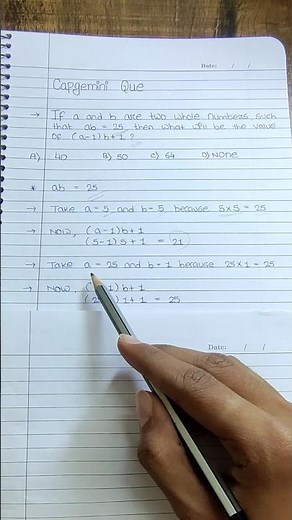 Date: / /
Capgemini Que
→ If a and b are two whole numbers such
that ab = 25 then what will be the value
of (a-1) b + 1 ?
A) 40 B) 50 C) 64 D) None
* ab = 25
→ Take a = 5 and b = 5 because 5 x 5 = 25
→ Now, (a-1) b+1
(5-1) 5 + 1 = 21
→ Take a = 25 and b = 1 because 25 x 1 = 25
→ Now, 1) b+1
(2 1) 1 + 1 = 25
Date: / /